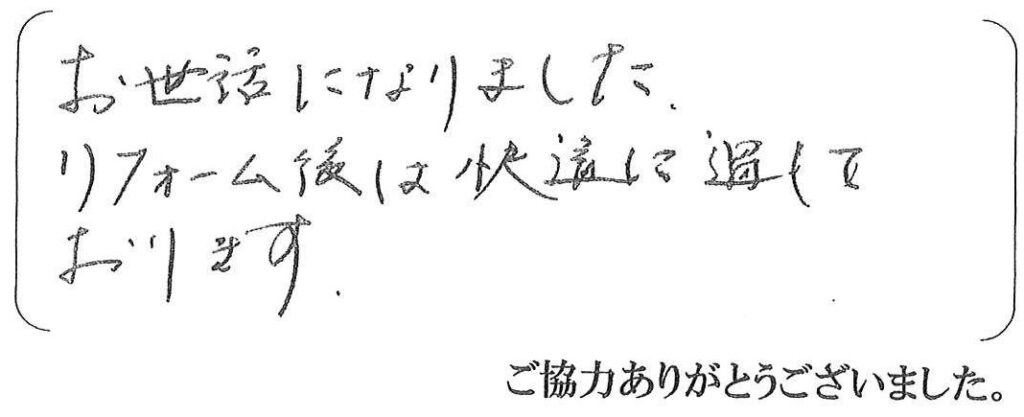 お世話になりました.
リフォーム後は快適に過して
おります.
ご協力ありがとうございました。